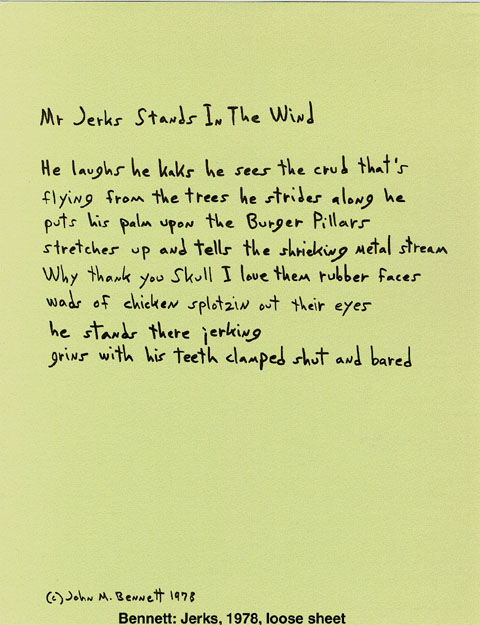 Mr Jerks Stands In The Wind
He laughs he kaks he sees the crud that's
flying from the trees he strides along he
puts his palm upon the Burger Pillars
stretches up and tells the shrieking metal stream
Why thank you Skull I love them rubber faces
wads of chicken splotzin out their eyes
he stands there jerking
grins with his teeth clamped shut and bared
(c) John M. Bennett 1978
Bennett: Jerks, 1978, loose sheet